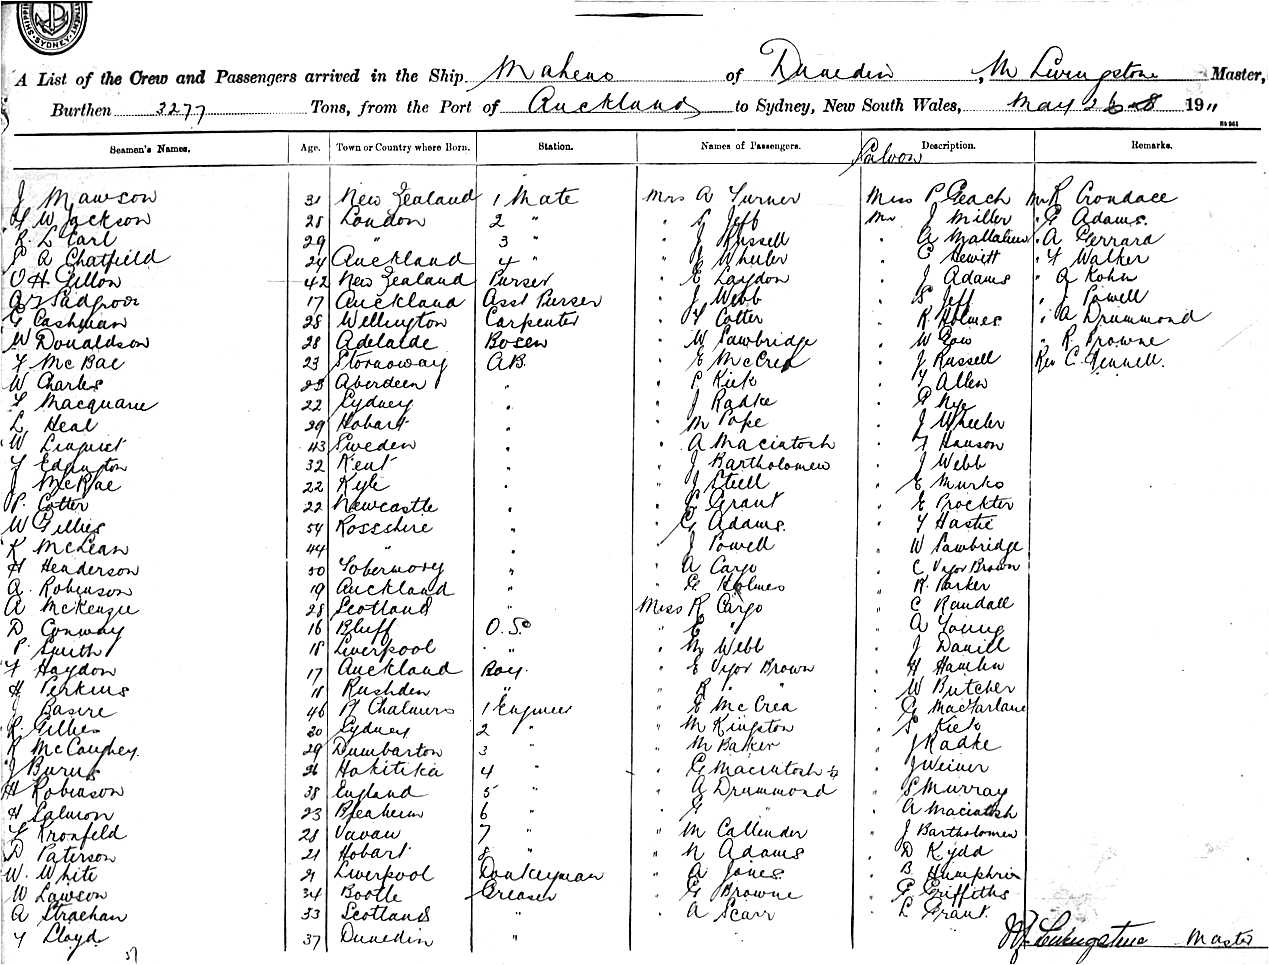 SHIPPING
SYDNEY
A List of the Crew and Passengers arrived in the Ship Maheno of Dunedin, M Livingstone Master,
Burthen 3277 Tons, from the Port of Auckland to Sydney, New South Wales, May 1911
Seamen's Names. Age. Town or Country where Born. Station. Names of Passengers. Saloon Description. Remarks.
J Mawson 31 New Zealand 1 Mate Mrs A Turner Miss P Geach Mr R Crondace
W Jackson 28 London 2 " " S Jeff Mr J Miller " G Adams.
R L Earl 29 " 3 " " J Russell " A " A Gerrard
S A Chatfield 24 Auckland 4 " " Wheeler " C Hewitt " F Walker
O H Gillon 42 New Zealand Purser " E Laydon " J Adams " A Kohn
17 Auckland Asst Purser " J Webb " S Jeff " J Powell
G Cashman 28 Wellington Carpenter " F Cotter " R Holmes " A Drummond
W Donaldson 28 Adelaide Bosen " W Sawbridge " W Gow " R Browne
F McBae 23 Stornoway A.B. " E McCrea " J Russell Rev C. Gennell.
W Charles 23 Aberdeen " " P Kiek " F Allen
F Macquarie 22 Sydney " " J Radke " G Nye
L Heal 29 Hobart " " M Pope " J Wheeler
W 43 Sweden " " A Macintosh " F Hanson
F Edington 32 Kent " " J Bartholomew " J Webb
J McRae 22 Kyle " " J Steell " E Murks
P. Cotter 22 Newcastle " " S Grant " E Prockter
W Gillies 54 Rossshire " " G Adams. " F Hastie
K McLean 44 " " " J Powell " W Sawbridge
H Henderson 50 Tobermory " " A Cargo " C Vyor Brown
A. Robinson 19 Auckland " " G Holmes " R. Parker
A McKenzie 28 Scotland " Miss R Cargo " C Randall
D Conway 16 Bluff O.S. " E " " A Young
P. Smith 18 Liverpool " " M Webb " J Daniell
F Haydon 17 Auckland Boy. " E Vyor Brown " H Hamlin
H Perkins 18 Rushden " " R " " " W Butcher
J Basire 46 Pt Chalmers 1 Engineer " E McCrea " G MacFarlane
R. Gillies 30 Sydney 2 " " M Kingston " S Kiek
R McCaughey. 29 Dumbarton 3 " " M Barker " J Radke
J Burns 26 Hokitika 4 " " G Macintosh " J Weiner
H Robinson 38 England 5 " " A Drummond " S Murray
H Salmon 23 Blenheim 6 " " G " " A Macintosh
F Kronfeld 28 Vavau 7 " " M Callender " J Bartholomew
D Paterson 21 Hobart 8 " " N Adams " D Kydd
W. White 21 Liverpool Donkeyman " A Jones " B Humphris
W Lawson 34 Bootle Greaser " G Browne " G Griffiths
A Strachan 33 Scotland " " A Scarr " L Grant.
F Lloyd 37 Dunedin "
37
Livingstone Master